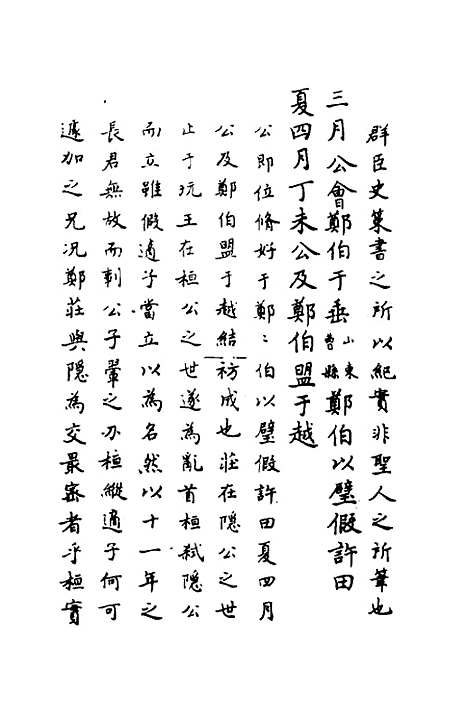 群臣史策書之所以紀實非聖人之所筆也
三月公會鄭伯于垂山東曹縣鄭伯以璧假許田
夏四月丁未公及鄭伯盟于越
公即位脩好于鄭〻伯以璧假許田夏四月
公及鄭伯盟于越結祊成也莊在隱公之世
止于玩王在桓公之世遂為亂首桓弒隱公
而立雖假適子當立以為名然以十一年之
長君無故而刺公子翬之刃桓縱適子何可
遽加之兄況鄭莊與隱為交最密者乎桓實